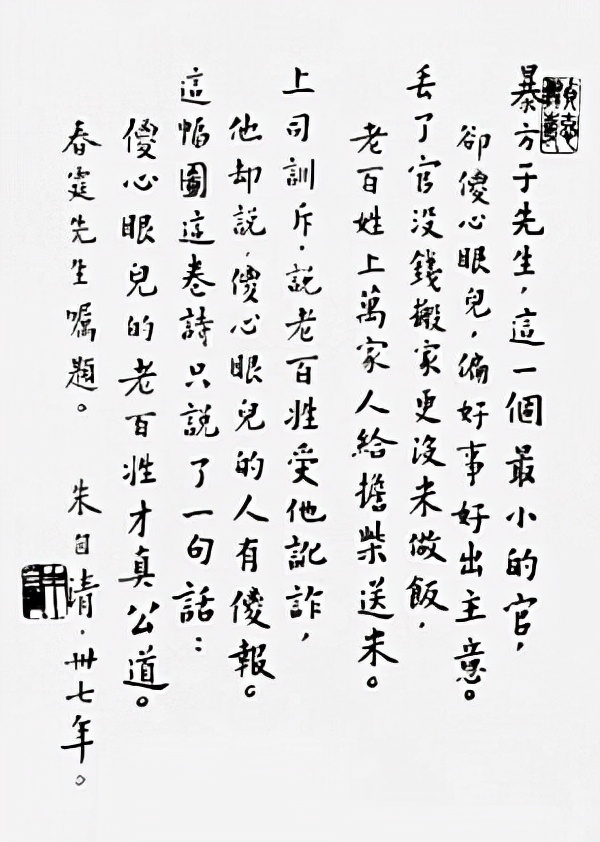 暴方子先生，這一個最小的官，
卻傻心眼兒，偏好事好出主意。
丢了官没錢搬家更没米做飯，
老百姓上萬家人給擔柴送米。
上司訓斥，説老百姓受他訛詐，
他却説，傻心眼兒的人有傻報。
這幅圖這卷詩只説了一句話：
傻心眼兒的老百姓才真公道。
春霆先生嘱題。 朱自清．卅七年。